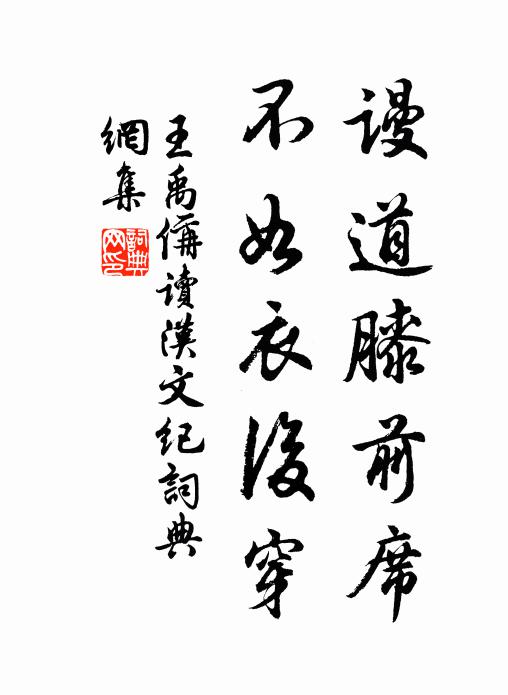 謾道膝前席
不如衣後穿
王禹偁讀漢文紀詞典
網集
詞典網印